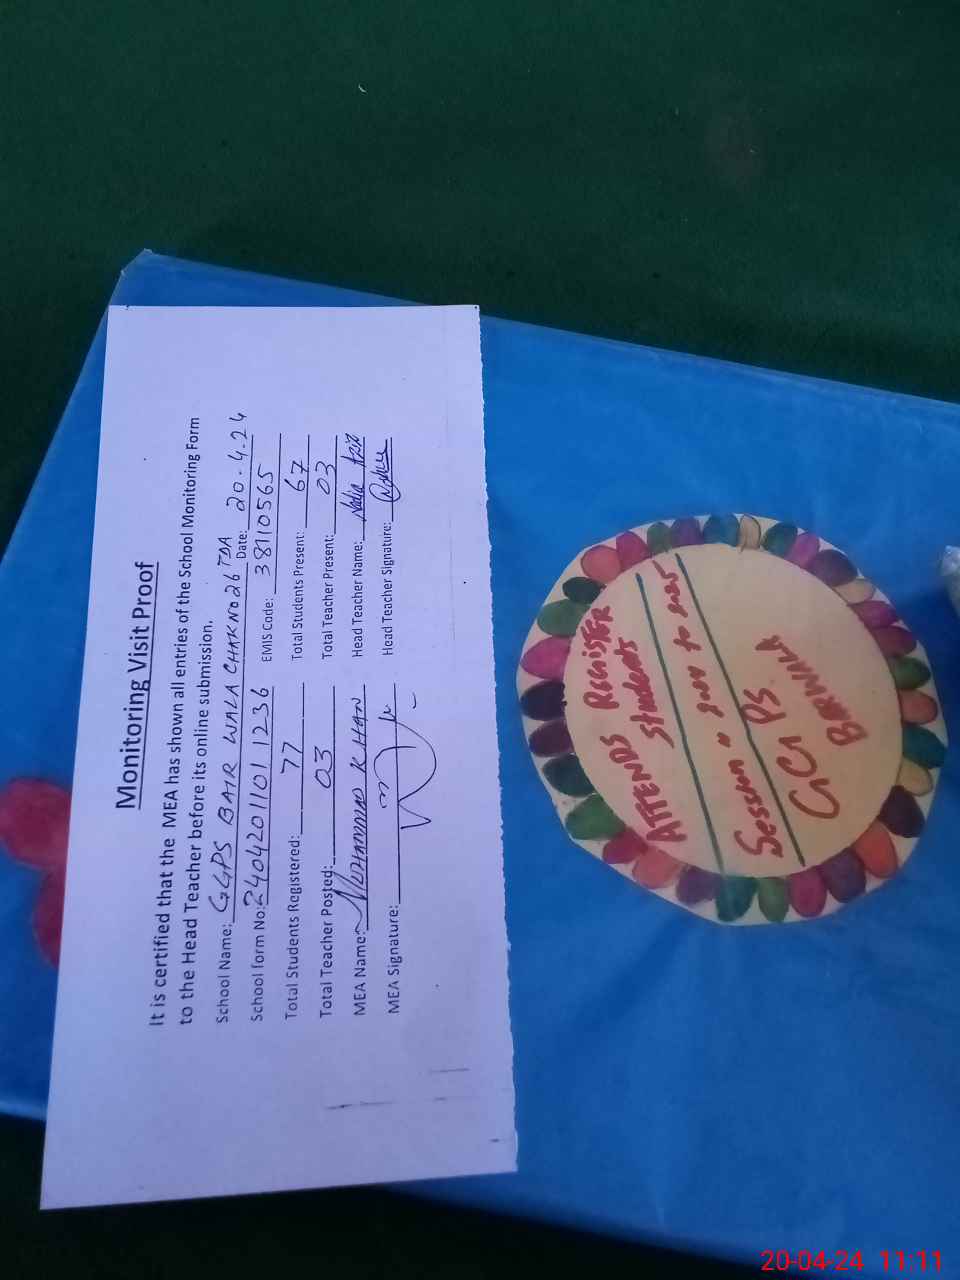 Monitoring Visit Proof
It is certified that the MEA has shown all entries of the School Monitoring Form
to the Head Teacher before its online submission.
School Name: GGPS BAIR WALA CHAK NO 26 TDA Date: 20-4-24
School form No: 2404201101 1236 EMIS Code: 38110565
Total Students Registered: 77 Total Students Present: 67
Total Teacher Posted: 03 Total Teacher Present: 03
MEA Name: MUHAMMAD KHAN Head Teacher Name: Nadia Aziz
MEA Signature: Head Teacher Signature:
ATTENDS REGISTER
Students
Session to
GGPS
BARWALLA
20-04-24 11:11